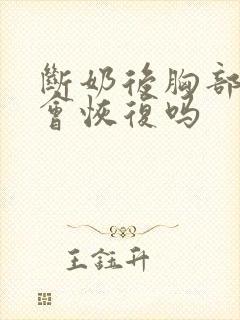 斷奶後胸部
會恢復嗎
王鈺升